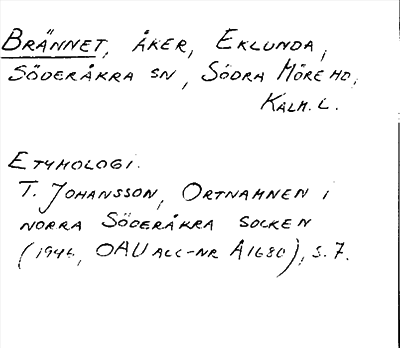 BRÄNNET, ÅKER, EKLUNDA,
SÖDERÅKRA SN, SÖDRA MÖRE HD,
KALM. L.
ETYMOLOGI.
T. JOHANSSON, ORTNAMNEN I
NORRA SÖDERÅKRA SOCKEN
(1946, OAU ACC-NR A1680), S. 7.